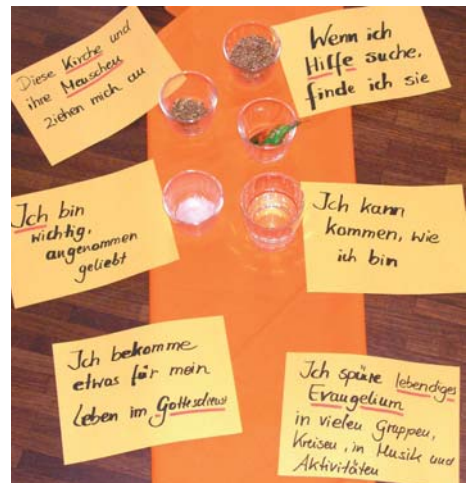 Diese Kirche und
ihre Menschen
ziehen mich an
Wenn ich
Hilfe suche,
finde ich sie
Ich bin
wichtig,
angenommen
geliebt
Ich kann
kommen, wie
ich bin
Ich bekomme
etwas für mein
Leben im Gottesdienst
Ich spüre lebendiges
Evangelium
in vielen Gruppen,
Kreisen, in Musik und
Aktivitäten